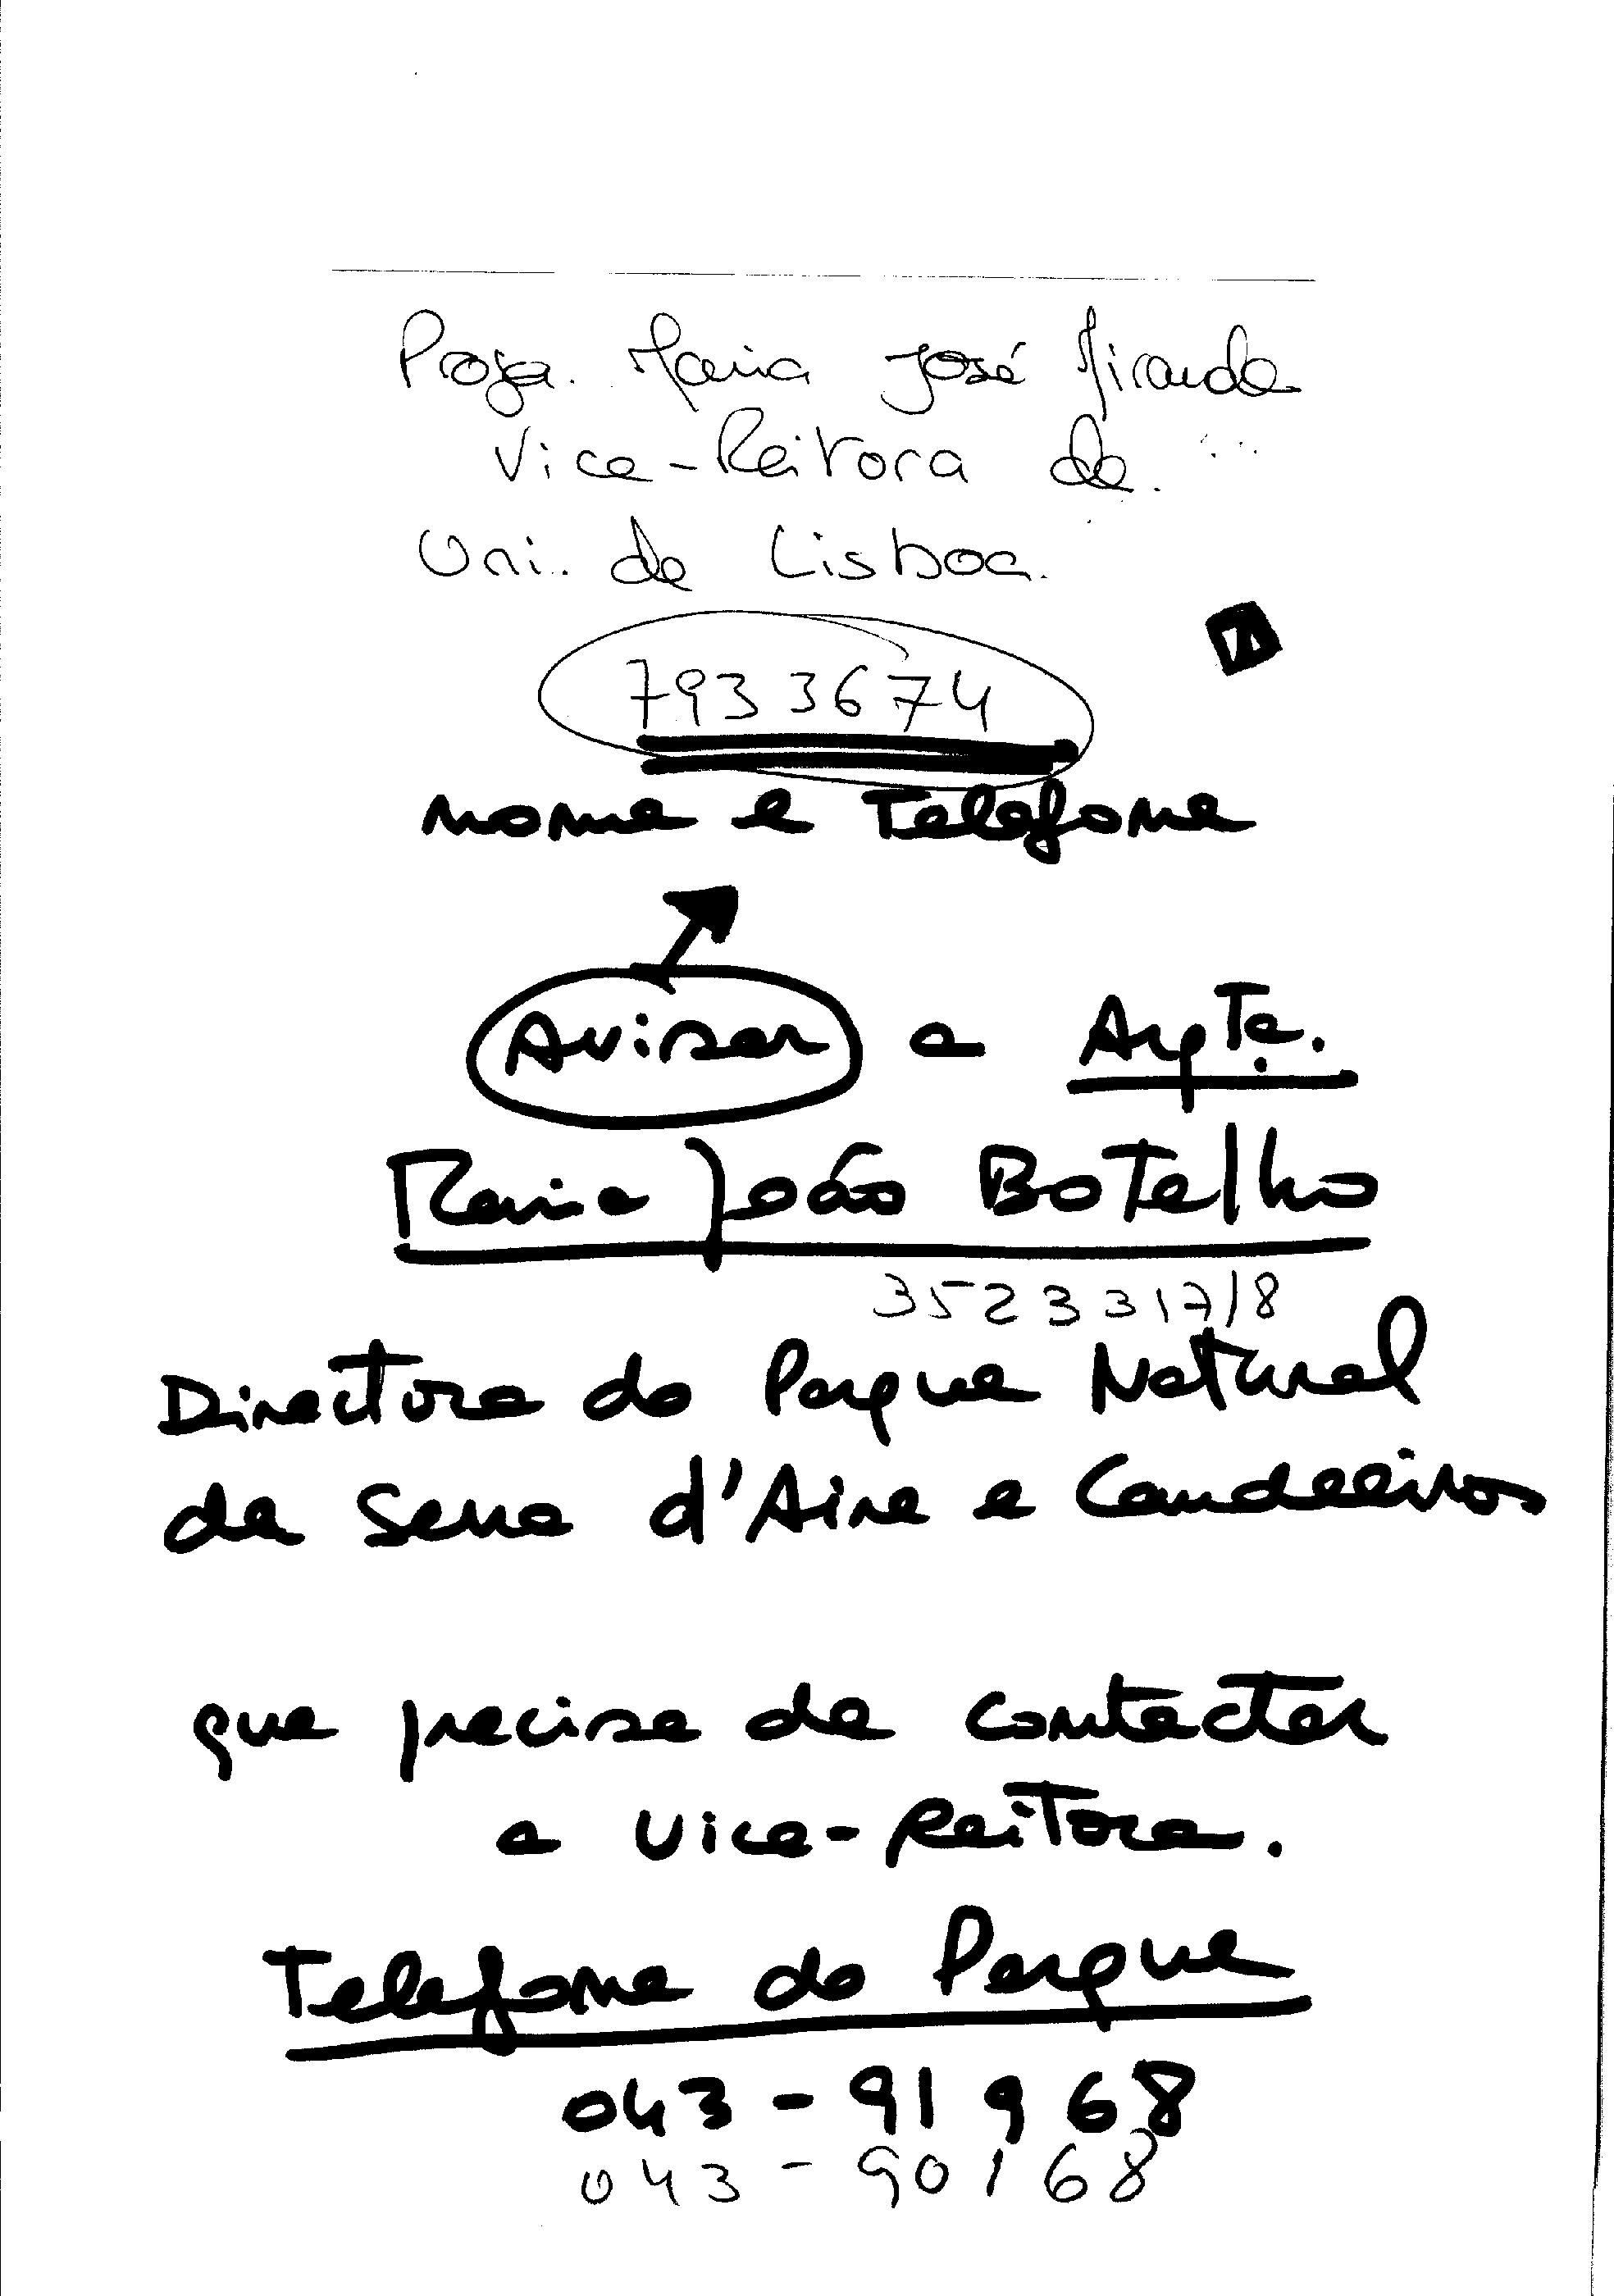 Profa. Maria José Miranda
Vice-Reitora da
Uni. de Lisboa.
7933674
nome e Telefone
Avisar a Arqta.
Maria João Botelho
3523317/8
Directora do Parque Natural
da Serra d'Aire e Candeeiros
que precisa de contactar
a Vice-Reitora.
Telefone do Parque
043-91968
043-90168